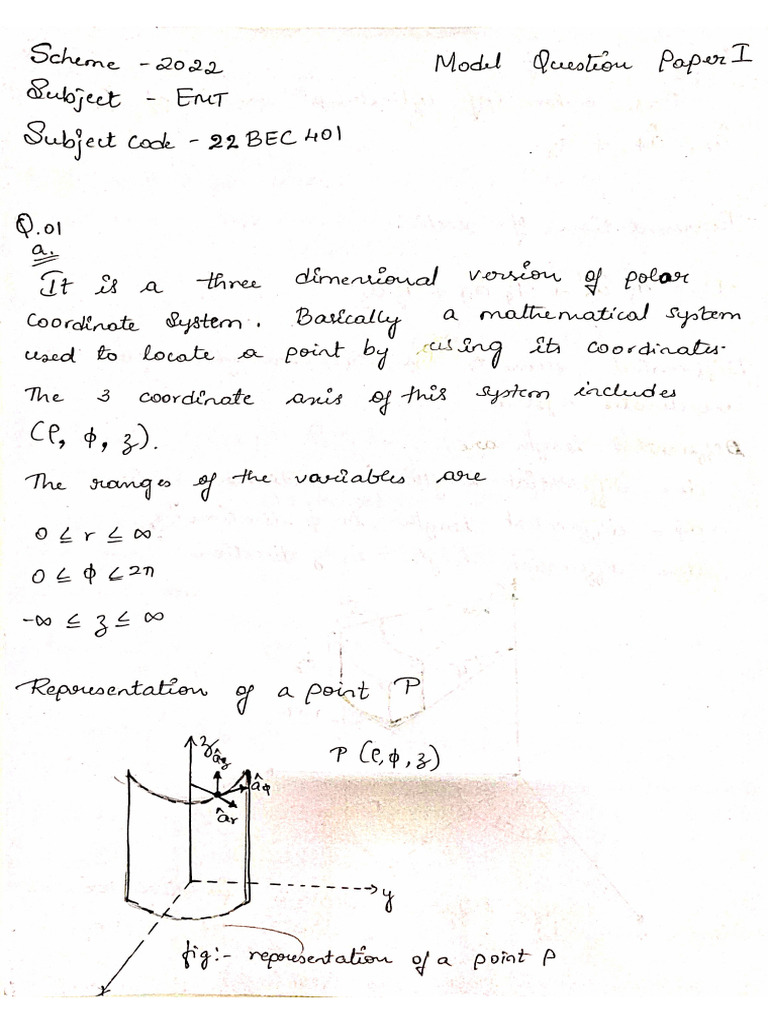 Scheme - 2022 Model Question Paper I
Subject - EMT
Subject code - 22 BEC 401
Q.01
a.
It is a three dimensional version of polar
coordinate system. Basically a mathematical system
used to locate a point by using its coordinates.
The 3 coordinate axis of this system includes
(ρ, ϕ, z).
The ranges of the variables are
0 ≤ r ≤ ∞
0 ≤ ϕ < 2π
-∞ ≤ z ≤ ∞
Representation of a point P
P (ρ, ϕ, z)
z
âz
âϕ
âr
y
fig:- representation of a point P